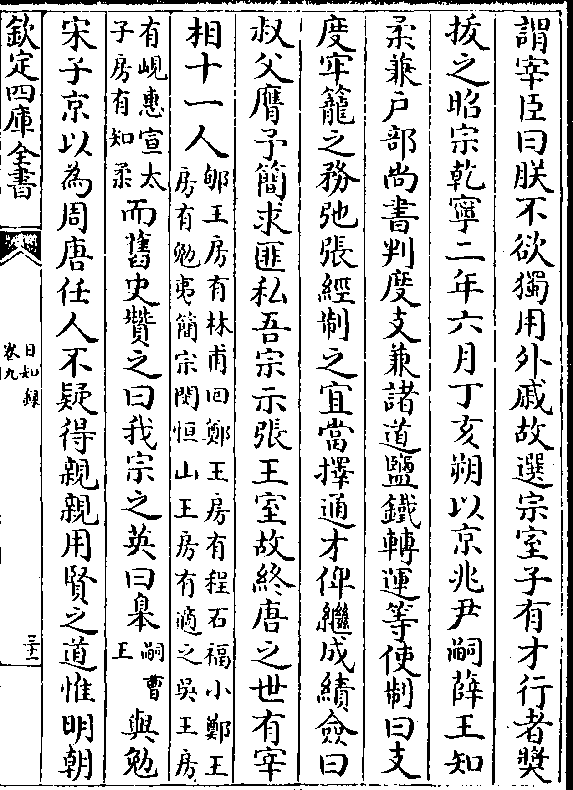 謂宰臣曰朕不欲獨用外戚故選宗室子有才行者奬
拔之昭宗乾寧二年六月丁亥朔以京兆尹嗣薛王知
柔兼户部尚書判度支兼諸道鹽鐵轉運等使制曰支
度牢籠之務弛張經制之宜當擇通才俾繼成績僉曰
叔父膺予簡求匪私吾宗示張王室故終唐之世有宰
相十一人郇王房有林甫回鄭王房有程石福小鄭王
房有勉夷簡宗閔恒山王房有適之吳王房
有峴惠宣太
子房有知柔而舊史贊之曰我宗之英曰臯嗣曹
王與勉
宋子京以為周唐任人不疑得親親用賢之道惟明朝
欽定四庫全書
日知錄
卷九
三十二